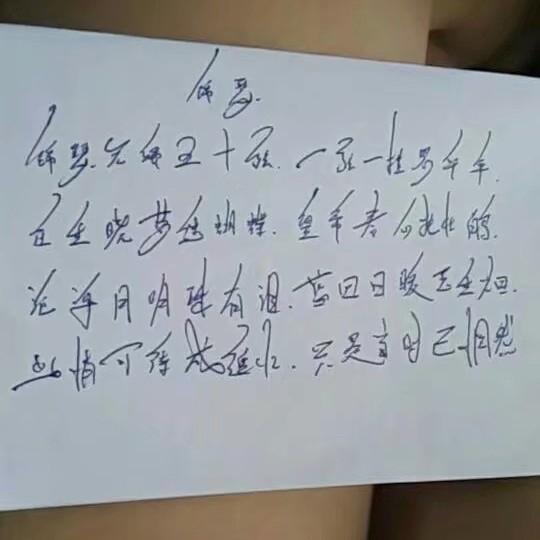 锦瑟.
锦瑟无端五十弦.一弦一柱思华年.
庄生晓梦迷蝴蝶.望帝春心托杜鹃.
沧海月明珠有泪.蓝田日暖玉生烟.
此情可待成追忆.只是当时已惘然